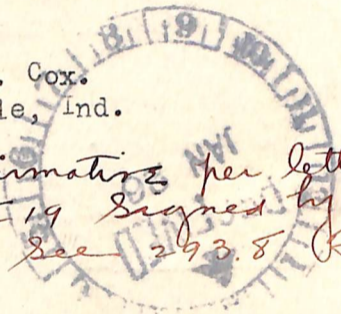 . Cox.
le, Ind.
irmative per lett
19 Signed by
See 293.8 (R
8 9 10
JAN